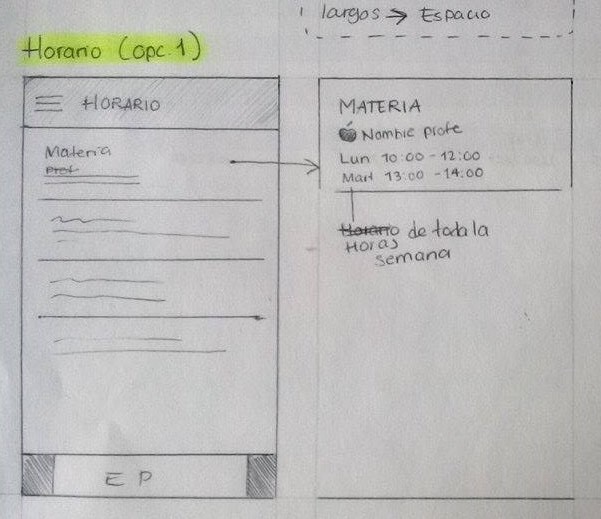 largos → Espacio
Horario (opc. 1)
HORARIO
Materia
Prof
E P
MATERIA
Nombre profe
Lun 10:00 - 12:00
Mart 13:00 - 14:00
Horario de toda la
Horas
semana